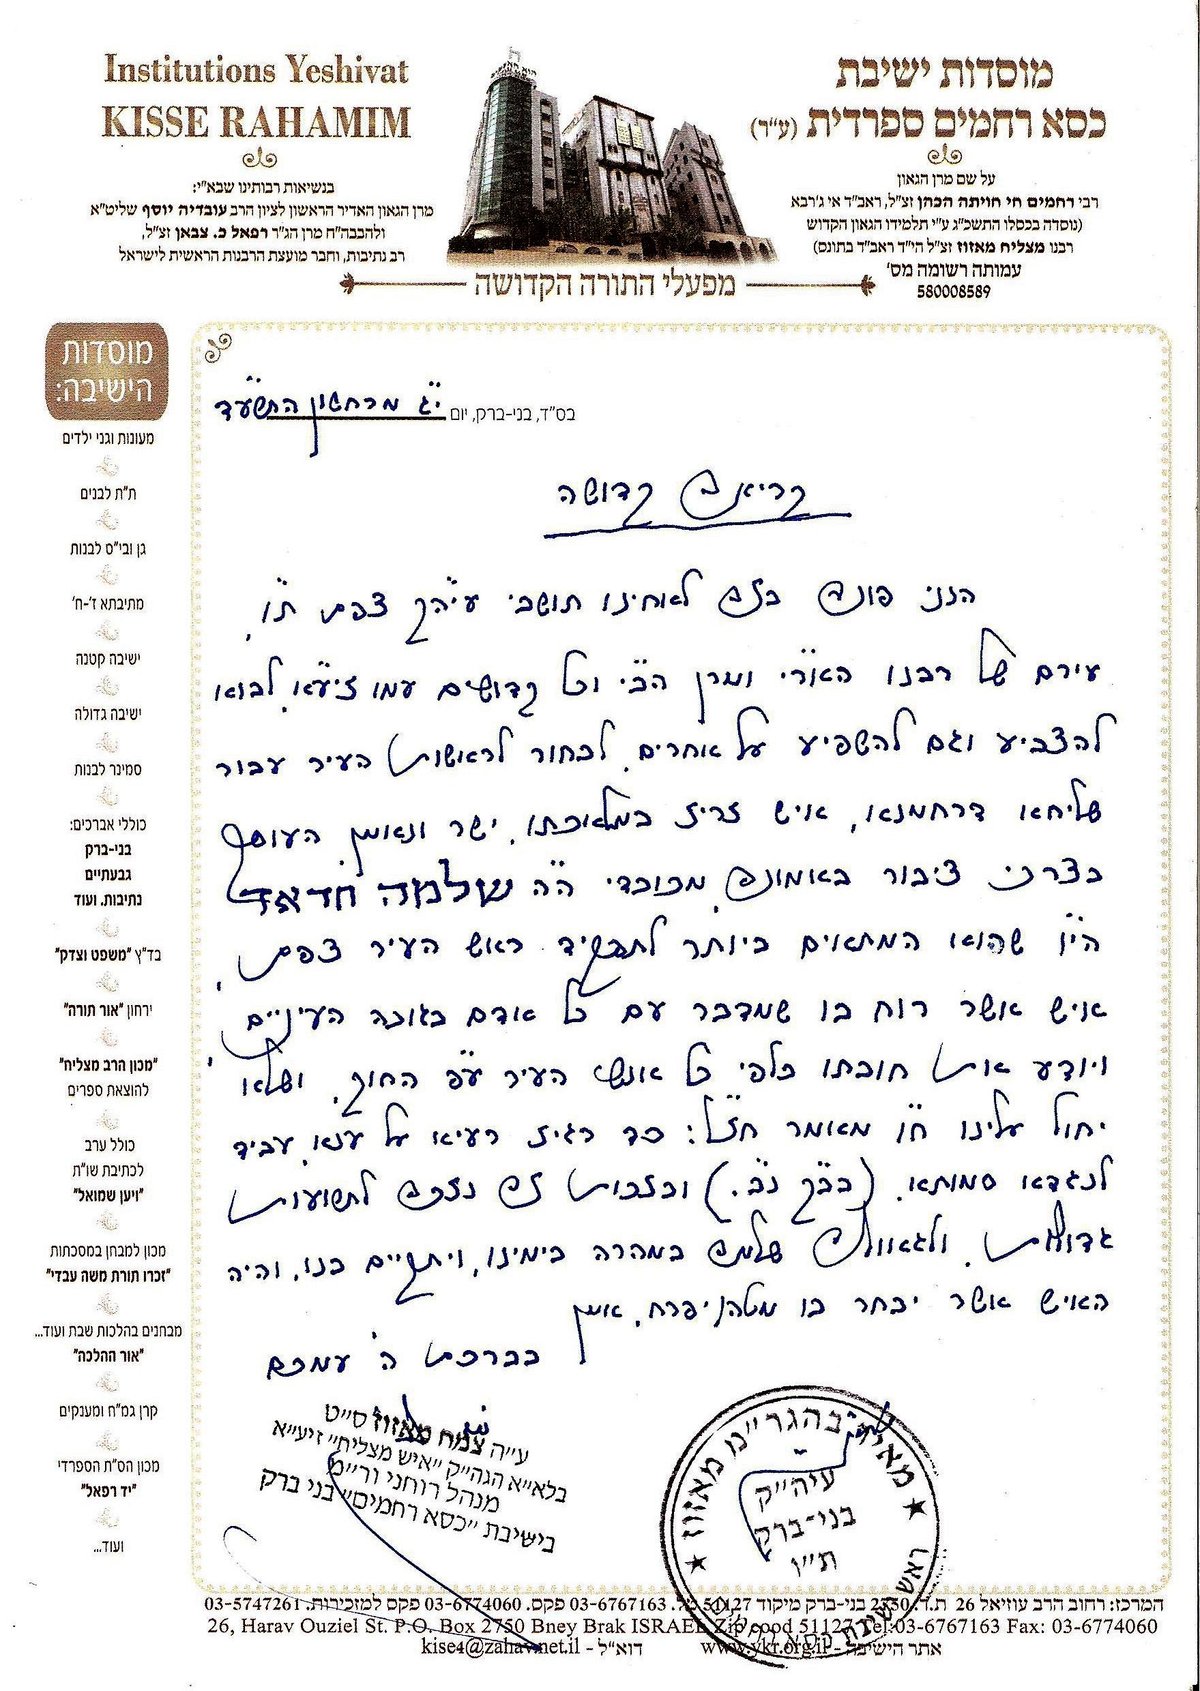 Institutions Yeshivat
KISSE RAHAMIM
בנשיאות רבותינו שבא"י:
מרן הגאון האדיר הראשון לציון הרב עובדיה יוסף שליט"א
ולהבבה"ח מרן הגר"ר רפאל כ. צבאן זצ"ל,
רב נתיבות, וחבר מועצת הרבנות הראשית לישראל
מוסדות ישיבת
כסא רחמים ספרדית (ע"ר)
על שם מרן הגאון
רבי רחמים חי חויתה הכהן זצ"ל, ראב"ד אי ג'רבא
(נוסדה בכסלו התשכ"ג ע"י תלמידו הגאון הקדוש
רבנו מצליח מאזוז זצ"ל הי"ד ראב"ד בתונס)
עמותה רשומה מס'
580008589
מפעלי התורה הקדושה
מוסדות
הישיבה:
מעונות וגני ילדים
ת"ת לבנים
גן ובי"ס לבנות
מתיבתא ז'-ח'
ישיבה קטנה
ישיבה גדולה
סמינר לבנות
כוללי אברכים:
בני-ברק
גבעתיים
נתיבות. ועוד
בד"ץ "משפט וצדק"
ירחון "אור תורה"
"מכון הרב מצליח"
להוצאת ספרים
כולל ערב
לכתיבת שו"ת
"ויען שמואל"
מכון למבחן במסכתות
"זכרו תורת משה עבדי"
מבחנים בהלכות שבת ועוד...
"אור ההלכה"
קרן גמ"ח ומענקים
מכון הס"ת הספרדי
"יד רפאל"
ועוד...
בס"ד, בני-ברק, יום י"ג מרחשון התשע"ד
קריאה קדושה
הנני פונה בזה לאחינו תושבי עיה"ק צפת ת"ו,
עירם של רבנו האר"י ומרן הב"י וכל קדושים עמו זיע"א, לבוא
להצביע וגם להשפיע על אחרים, לבחור לראשות העיר עבור
שליחא דרחמנא, איש זריז במלאכתו, ישר ונאמן, העוסק
בצרכי ציבור באמונה, מכובדי ה"ה שלמה חדאד
הי"ו שהוא המתאים ביותר לתפקיד ראש העיר צפת,
איש אשר רוח בו שמדבר עם כל אדם בגובה העיניים
ויודע את חובתו כלפי כל אנשי העיר עפ"י החוק, ושלא
יחול עלינו ח"ו מאמר חז"ל: כד רגיז רעיא על ענא, עביד
לנגדא סמותא. (ב"ק נ"ב.) ובזכות זה נזכה לתשועות
גדולות, ולגאולה שלמה במהרה בימינו, ויתקיים בנו, והיה
האיש אשר יבחר בו מטהו יפרח, אמן
בברכת ה' עמכם
ע"ה צמח מאזוז ס"ט
בלא"א הגה"ק "איש מצליח" זיע"א
מנהל רוחני ור"מ
בישיבת "כסא רחמים" בני ברק
מאיר בהגר"מ מאזוז
ראש ישיבת כסא רחמים
עיה"ק
בני-ברק
ת"ו
המרכז: רחוב הרב עוזיאל 26 ת.ד. 2750 בני-ברק מיקוד 51127 טל. 03-6767163 פקס. 03-6774060 פקס למזכירות. 03-5747261
26, Harav Ouziel St. P.O. Box 2750 Bney Brak ISRAEL Zip cood 51127 Tel:03-6767163 Fax: 03-6774060
אתר הישיבה - www.ykr.org.il דוא"ל - kise4@zahav.net.il